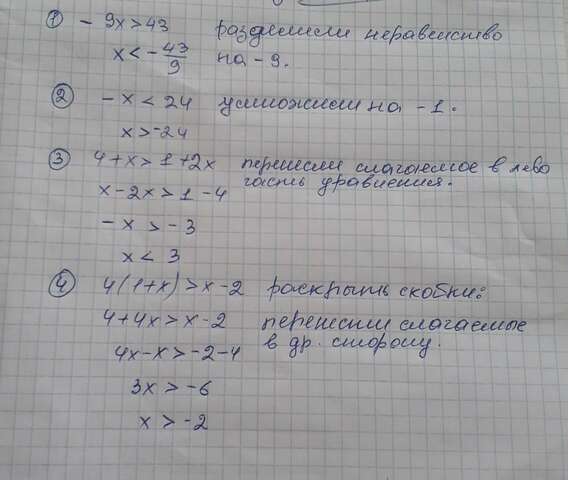 ① - 9x>43 разделили неравенство
x < -43/9 на -9.
② -x < 24 умножили на -1.
x>-24
③ 4+x>1+2x перенесли слагаемое в лево
x-2x>1-4 часть уравнения.
-x > -3
x < 3
④ 4(1+x)>x-2 раскрыть скобки:
4+4x>x-2 перенесли слагаемые
4x-x>-2-4 в др. сторону.
3x>-6
x>-2